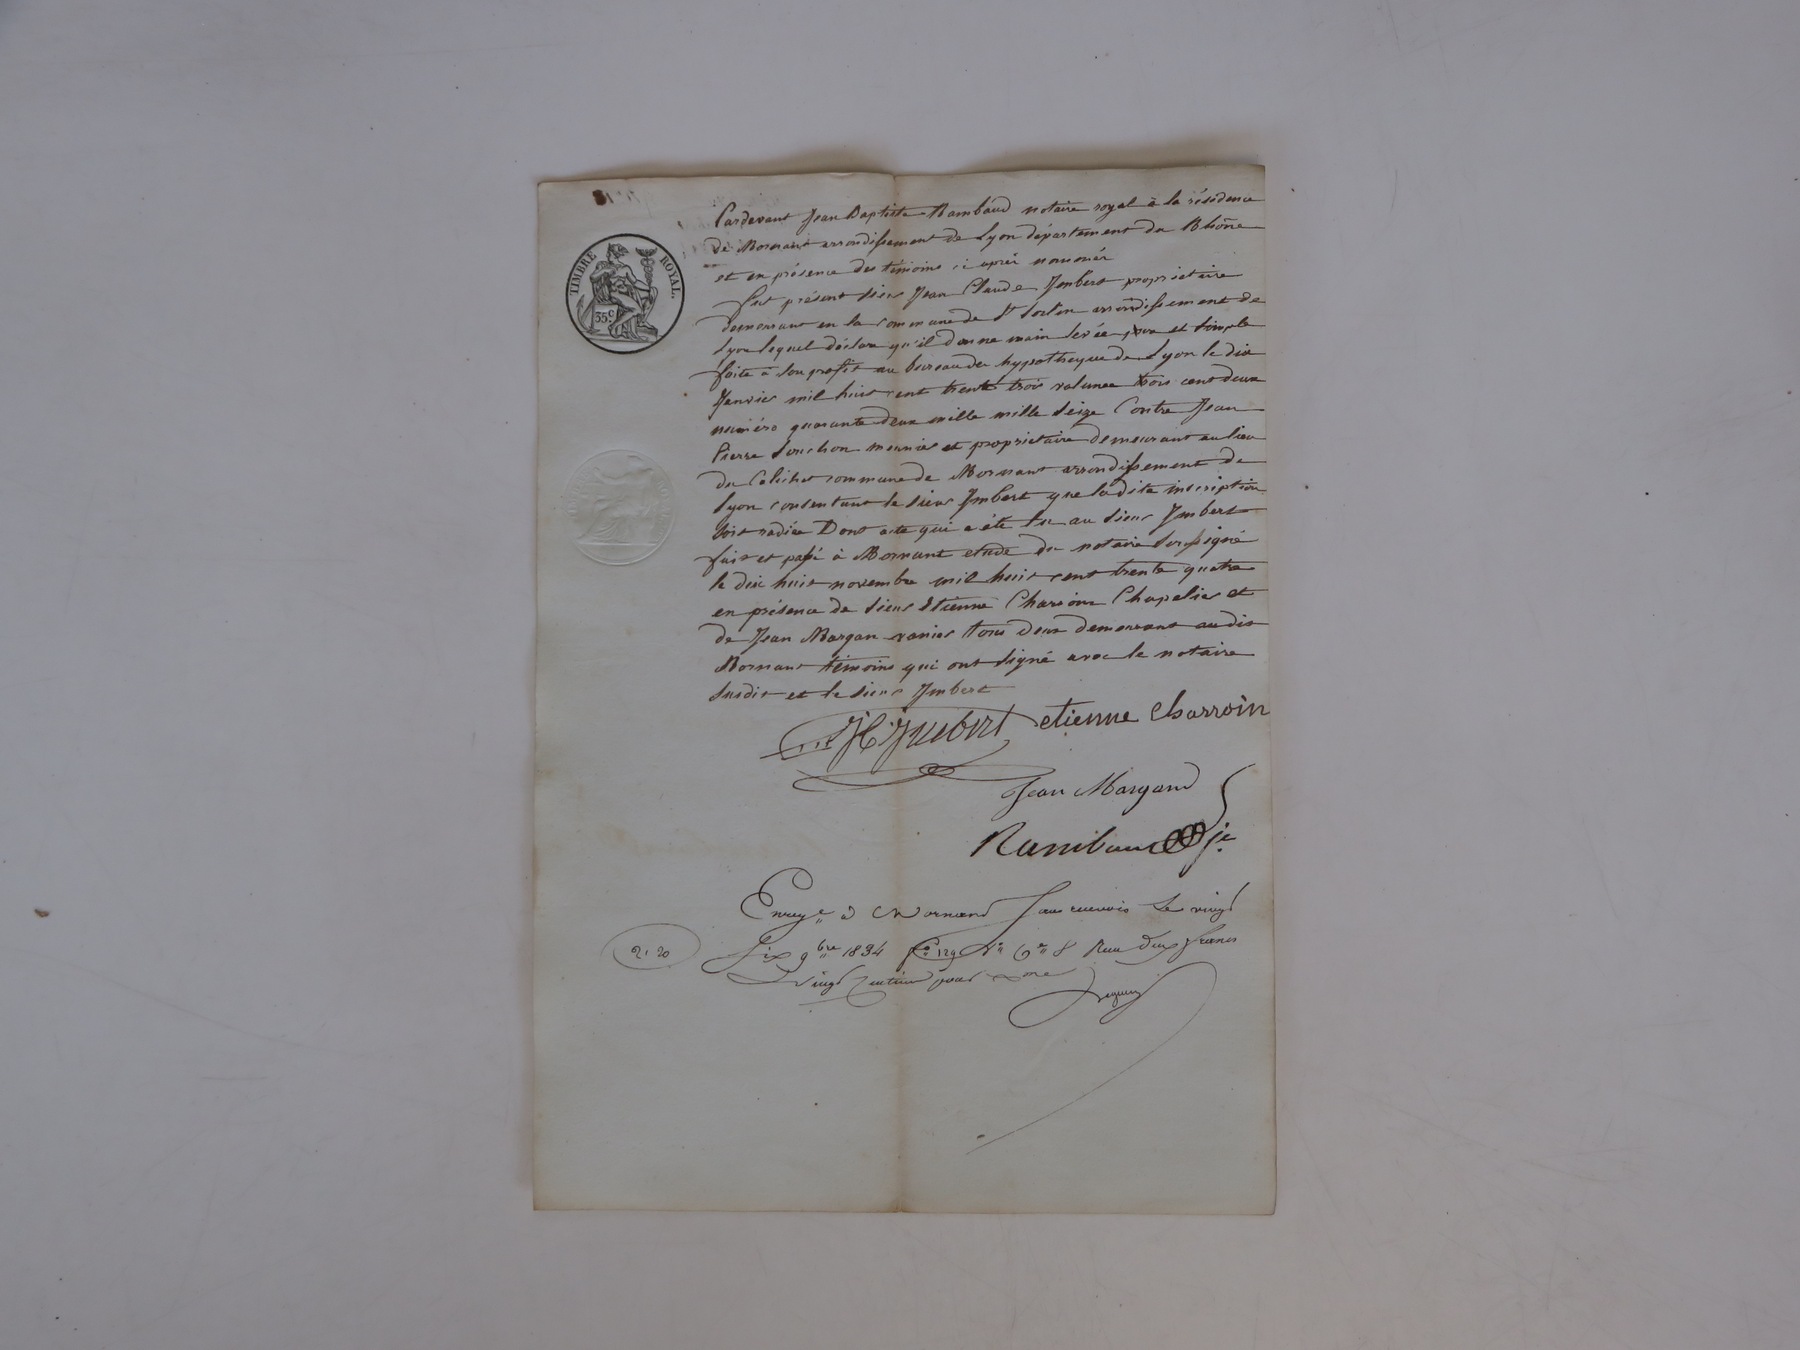 TIMBRE ROYAL.
35 c
Pardevant Jean Baptiste Rambaud notaire royal à la résidence
de Mornant arrondissement de Lyon département du Rhône
et en présence des témoins ci après nommés
fut présent sieur Jean Claude Imbert proprietaire
demeurant en la commune de St Sorlin arrondissement de
Lyon lequel déclare qu'il donne main levée pure et simple
faite à son profit au bureau des hypotheques de Lyon le dix
Janvier mil huit cent trente trois volume trois cent deux
numéro quarante deux mille mille seize Contre Jean
Pierre Souchon meunier et proprietaire demeurant au lieu
du commune de Mornant arrondissement de
Lyon consentant le sieur Imbert que ladite inscription
soit radiée Dont acte qui a été lu au sieur Imbert
fait et passé à Mornant etude du notaire soussigné
le dix huit novembre mil huit cent trente quatre
en présence de sieur Etienne Charroin Chapelier et
de Jean Margan tous deux demeurant audit
Mornant témoins qui ont signé avec le notaire
susdit et le sieur Imbert
JC Imbert etienne charroin
Jean Margand
Rambaud
Enregé à Mornant sans renvois Le vingt
2. 20
Six 9bre 1834 fo 129 Vo Ce 8 Reçu deux francs
Vingt centimes pour xme